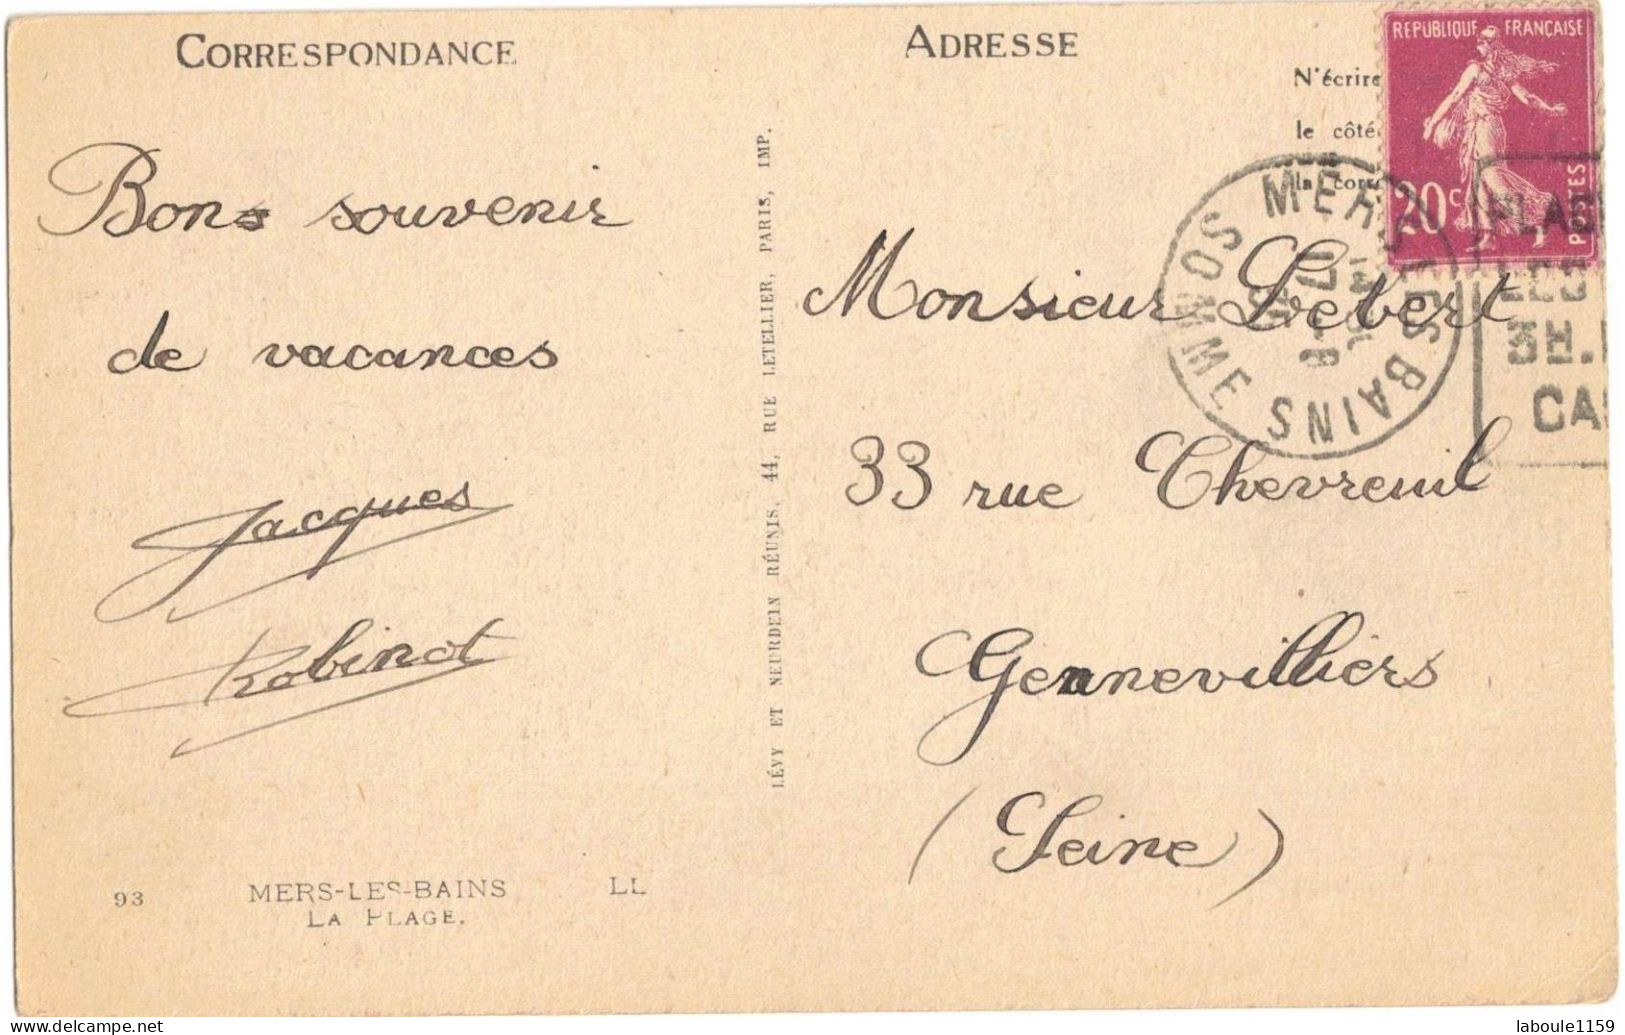 CORRESPONDANCE
Bons souvenir
de vacances
Jacques
Robinot
93 MERS-LES-BAINS LL
LA PLAGE.
LÉVY ET NEURDEIN RÉUNIS, 44, RUE LETELLIER, PARIS, IMP.
ADRESSE
N'écrire
le côté
la corre
RÉPUBLIQUE FRANÇAISE
20c
POSTES
MERS LES BAINS
SOMME
PLAGE
3H.
CAS
Monsieur Lebert
33 rue Chevreuil
Gennevilliers
(Seine)
laboule1159